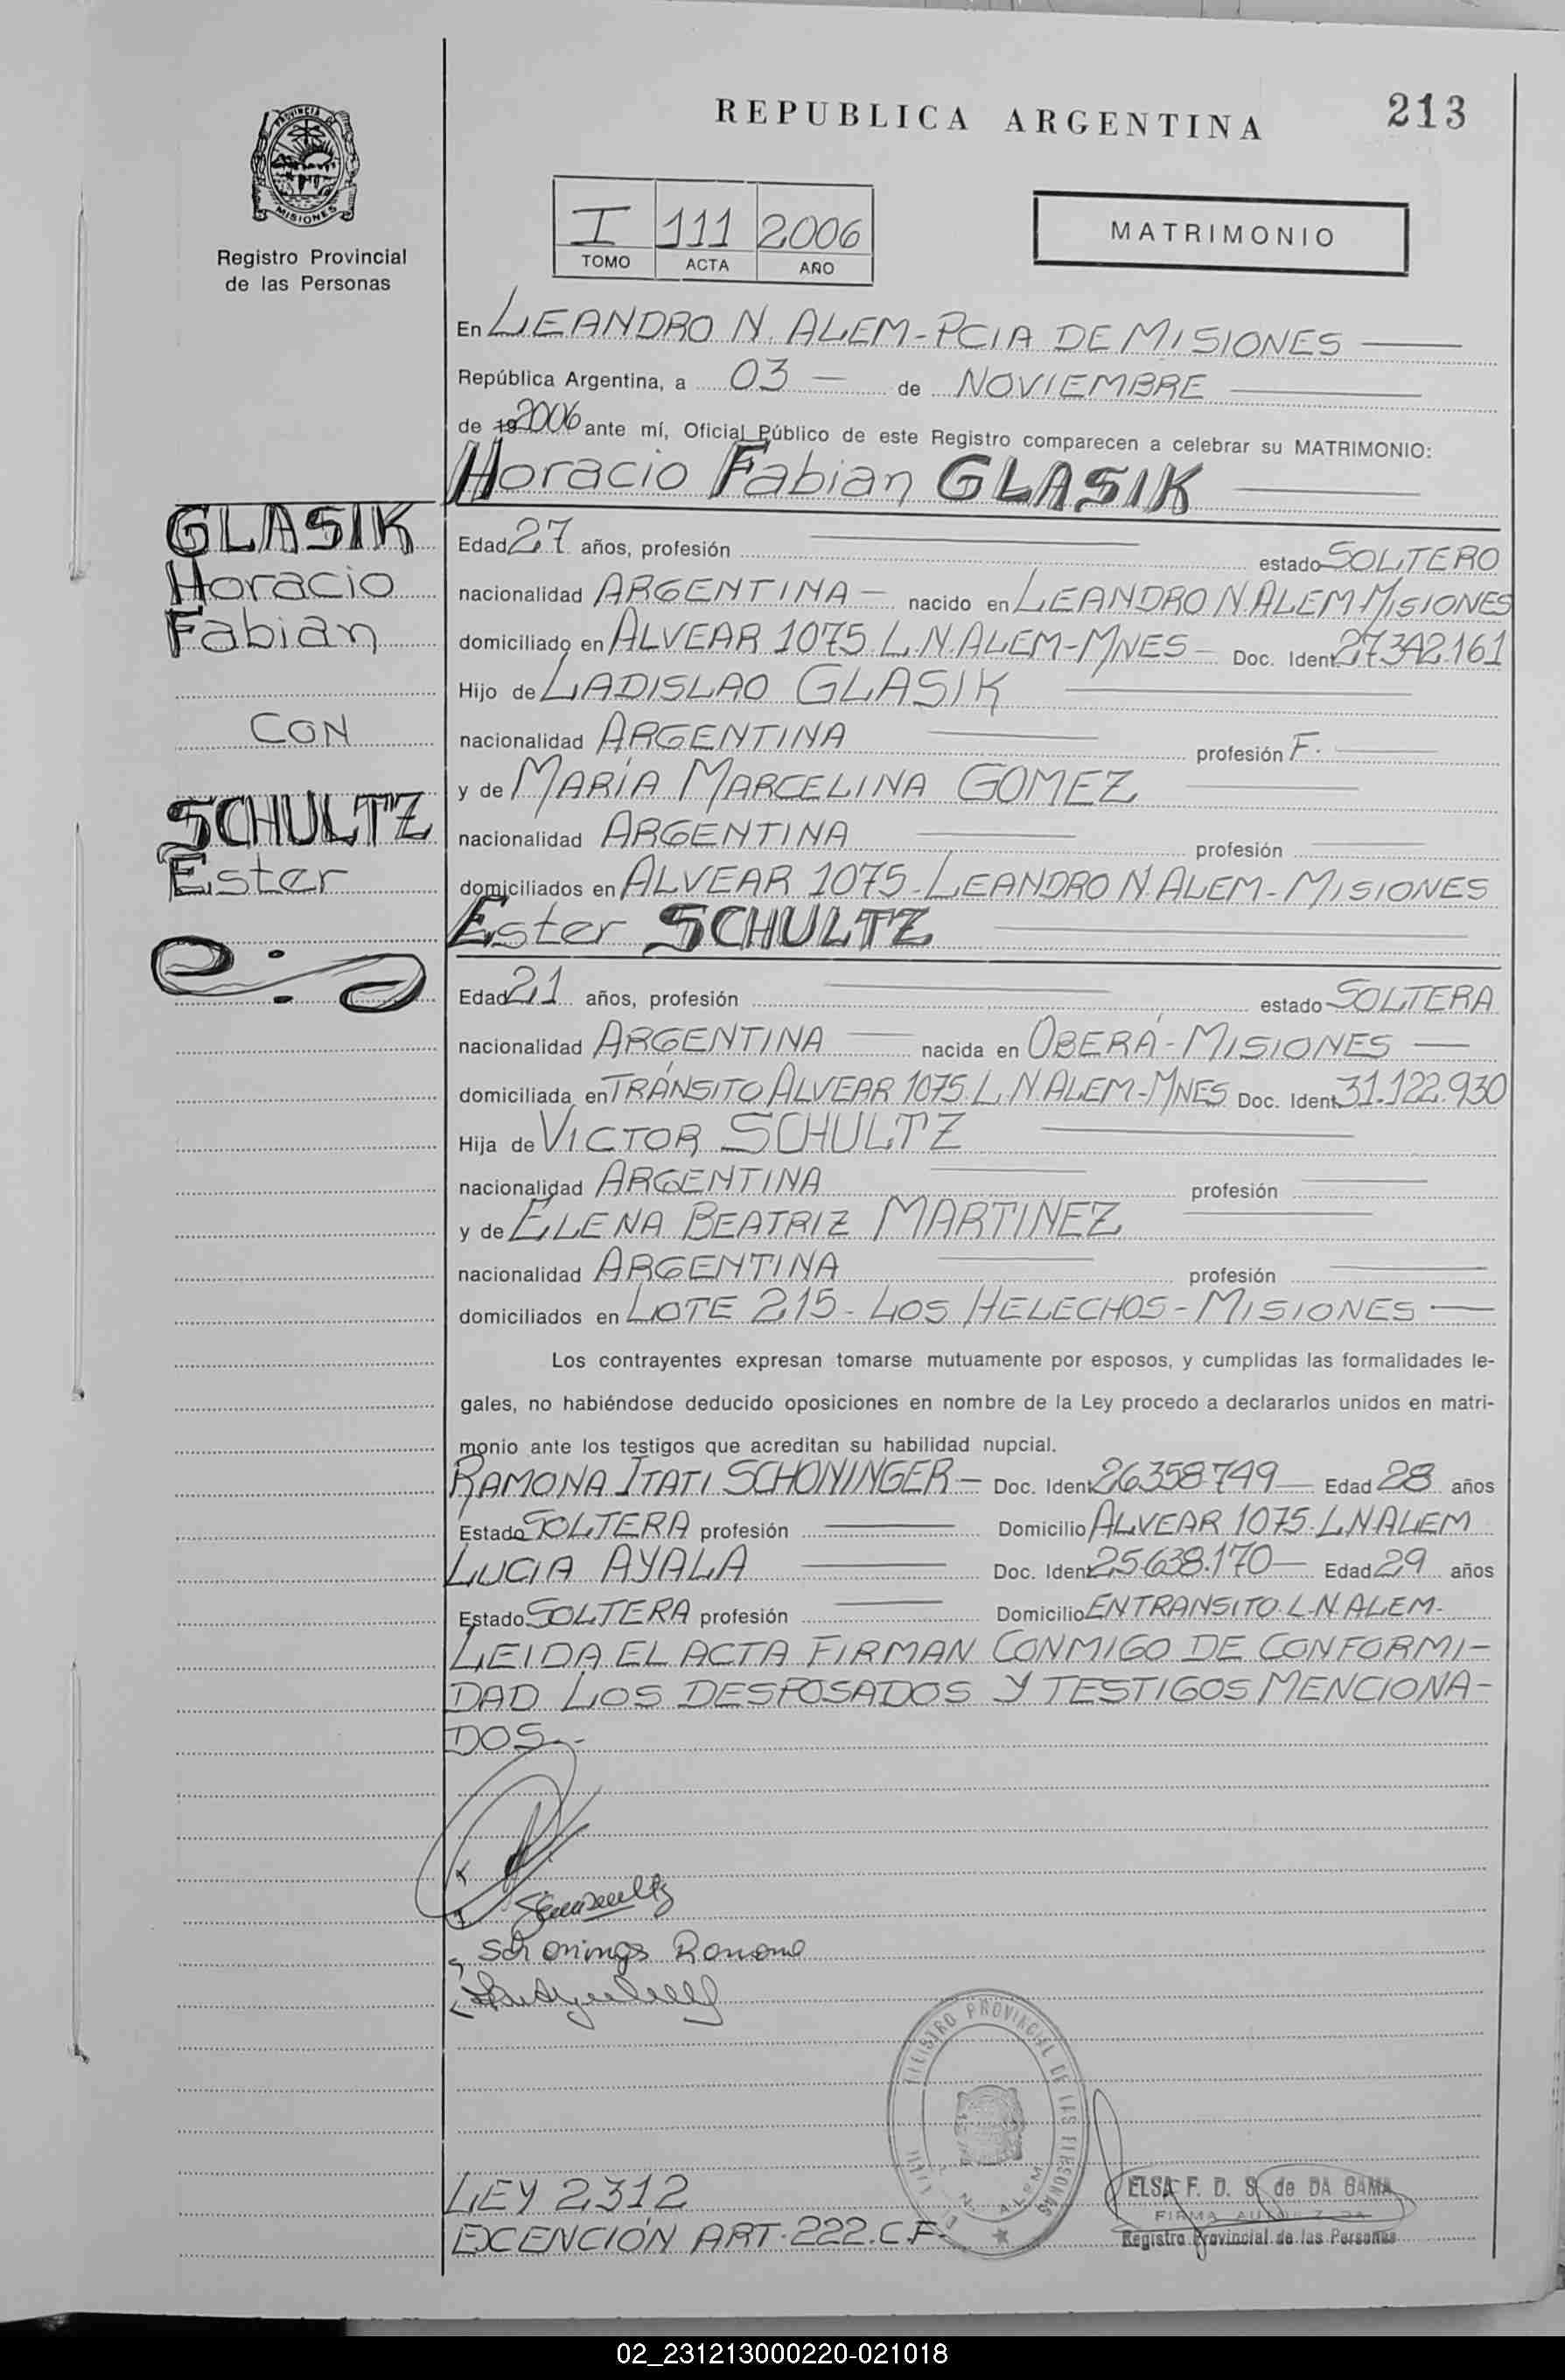 REPUBLICA ARGENTINA
213
PROVINCIA DE
MISIONES
Registro Provincial
de las Personas
I 111 2006
TOMO ACTA AÑO
MATRIMONIO
En LEANDRO N. ALEM-PCIA DE MISIONES
República Argentina, a 03 — de NOVIEMBRE
de 19 2006 ante mí, Oficial Público de este Registro comparecen a celebrar su MATRIMONIO:
Horacio Fabian GLASIK
GLASIK
Horacio
Fabian
CON
SCHULTZ
Ester
Edad 27 años, profesión estado SOLTERO
nacionalidad ARGENTINA — nacido en LEANDRO N ALEM MISIONES
domiciliado en ALVEAR 1075 L.N.ALEM-MNES — Doc. Ident. 27342.161
Hijo de LADISLAO GLASIK
nacionalidad ARGENTINA profesión F.
y de MARÍA MARCELINA GOMEZ
nacionalidad ARGENTINA profesión
domiciliados en ALVEAR 1075-LEANDRO N.ALEM-MISIONES
Ester SCHULTZ
Edad 21 años, profesión estado SOLTERA
nacionalidad ARGENTINA nacida en OBERÁ-MISIONES —
domiciliada en TRÁNSITO ALVEAR 1075 L.N ALEM-MNES Doc. Ident. 31.122.930
Hija de VICTOR SCHULTZ
nacionalidad ARGENTINA profesión
y de ELENA BEATRIZ MARTINEZ
nacionalidad ARGENTINA profesión
domiciliados en LOTE 215-LOS HELECHOS-MISIONES —
Los contrayentes expresan tomarse mutuamente por esposos, y cumplidas las formalidades le-
gales, no habiéndose deducido oposiciones en nombre de la Ley procedo a declararlos unidos en matri-
monio ante los testigos que acreditan su habilidad nupcial.
RAMONA ITATI SCHONINGER — Doc. Ident. 26358749 — Edad 28 años
Estado SOLTERA profesión Domicilio ALVEAR 1075-L.N.ALEM
LUCIA AYALA Doc. Ident. 25638.170 — Edad 29 años
Estado SOLTERA profesión Domicilio EN TRANSITO L.N.ALEM-
LEIDA EL ACTA FIRMAN CONMIGO DE CONFORMI-
DAD LOS DESPOSADOS Y TESTIGOS MENCIONA-
DOS.-
Ramona
REGISTRO PROVINCIAL DE LAS PERSONAS
N. ALEM
ELSA F. D. S. de DA GAMA
FIRMA AUTORIZADA
Registro Provincial de las Personas
LEY 2312
EXCENCIÓN ART. 222.C.F.
02_231213000220-021018